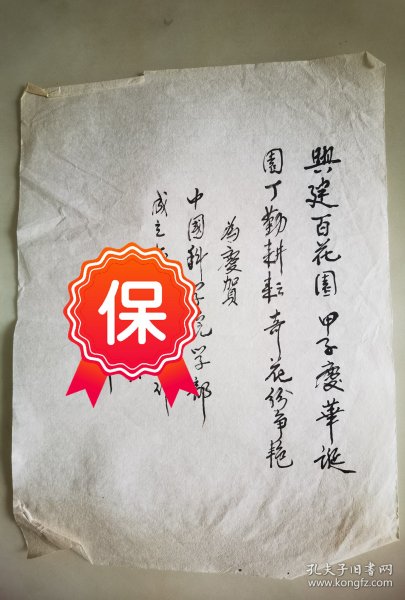 興建百花園甲子慶華誕
園丁勤耕耘奇花份争艳
为慶賀
中國科学院学部
成立
保
孔夫子旧书网
www.kongfz.com